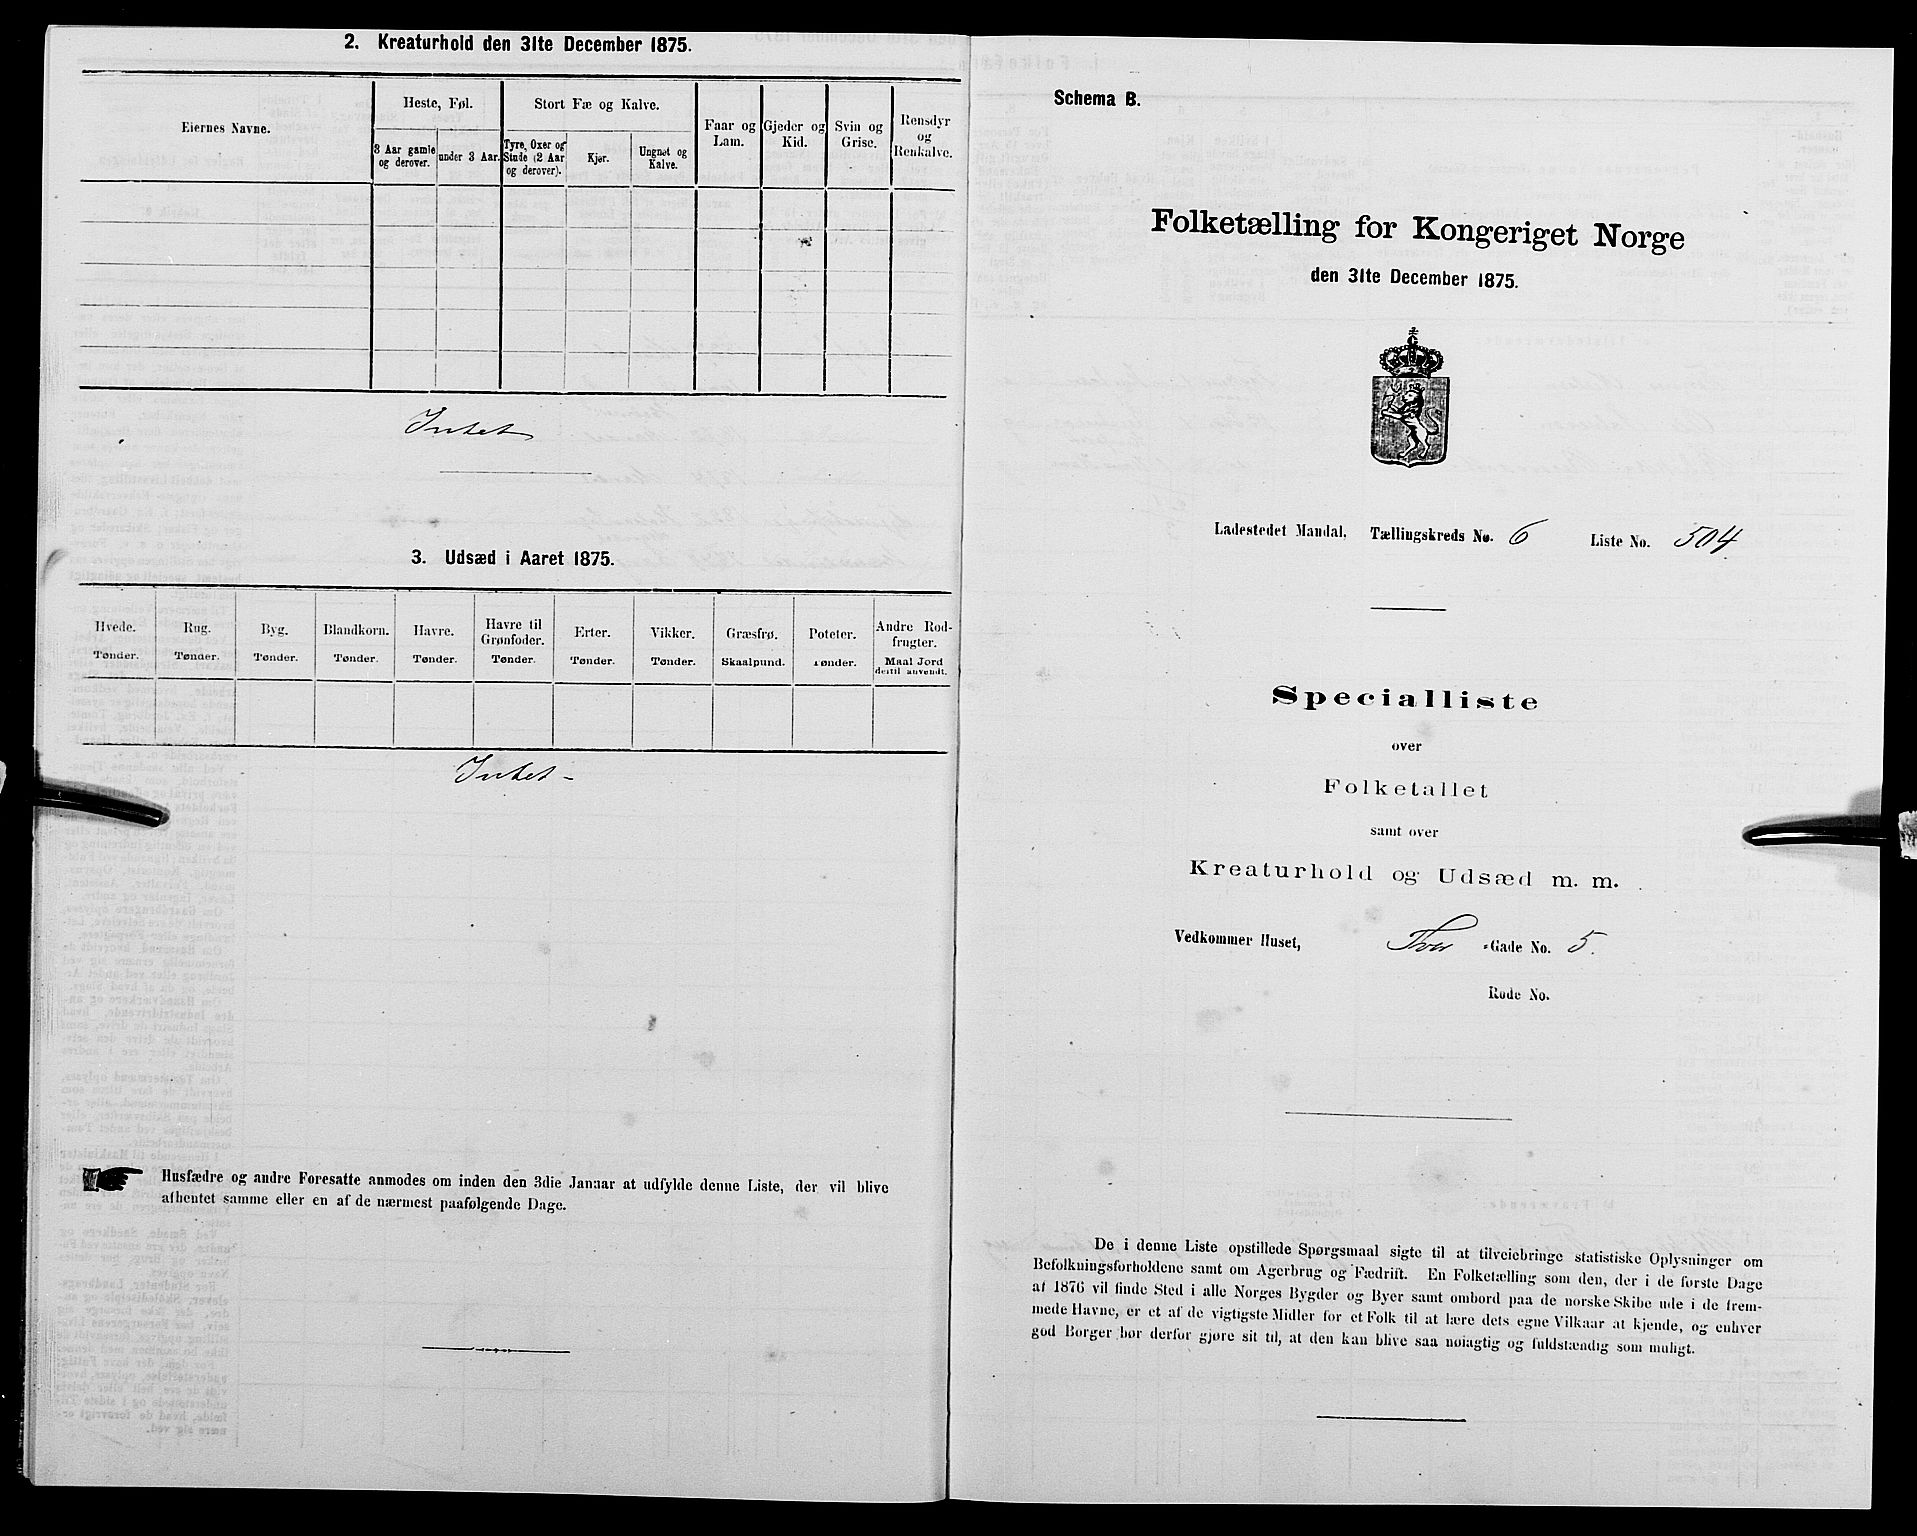 2. Kreaturhold den 31te December 1875.
Eiernes Navne.
Heste, Føl.
3 Aar gamle og derover.
under 3 Aar.
Stort Fæ og Kalve.
Tyre, Oxer og Stude (2 Aar og derover).
Kjør.
Ungnøt og Kalve.
Faar og Lam.
Gjeder og Kid.
Svin og Grise.
Rensdyr og Renkalve.
Intet
3. Udsæd i Aaret 1875.
Hvede. Tønder.
Rug. Tønder.
Byg. Tønder.
Blandkorn. Tønder.
Havre. Tønder.
Havre til Grønfoder. Tønder.
Erter. Tønder.
Vikker. Tønder.
Græsfrø. Skaalpund.
Poteter. Tønder.
Andre Rodfrugter. Maal Jord dertil anvendt.
Intet -
Husfædre og andre Foresatte anmodes om inden den 3die Januar at udfylde denne Liste, der vil blive
afhentet samme eller en af de nærmest paafølgende Dage.
Schema B.
Folketælling for Kongeriget Norge
den 31te December 1875.
Ladestedet Mandal, Tællingskreds No. 6 Liste No. 504
Specialliste
over
Folketallet
samt over
Kreaturhold og Udsæd m. m.
Vedkommer Huset, Tver -Gade No. 5.
Rode No.
De i denne Liste opstillede Spørgsmaal sigte til at tilveiebringe statistiske Oplysninger om
Befolkningsforholdene samt om Agerbrug og Fædrift. En Folketælling som den, der i de første Dage
af 1876 vil finde Sted i alle Norges Bygder og Byer samt ombord paa de norske Skibe ude i de frem-
mede Havne, er et af de vigtigste Midler for et Folk til at lære dets egne Vilkaar at kjende, og enhver
god Borger bør derfor gjøre sit til, at den kan blive saa nøiagtig og fuldstændig som muligt.